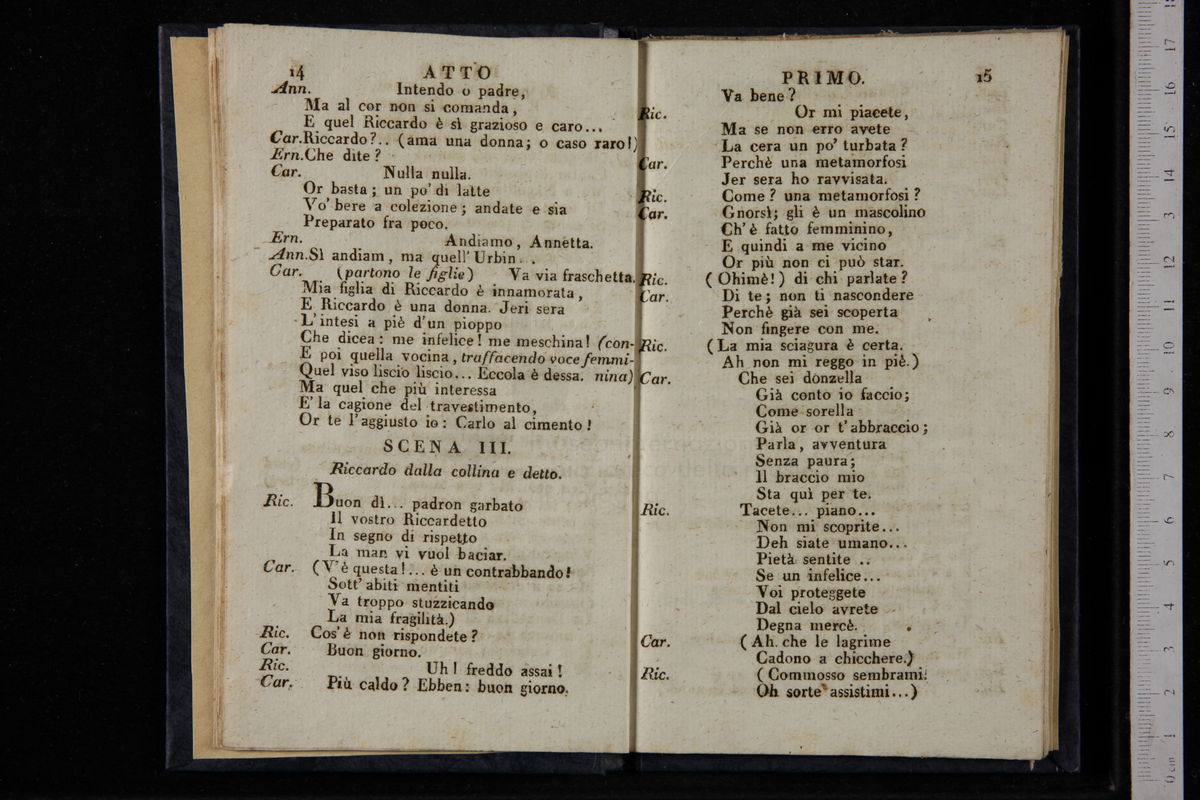 14 ATTO
Ann. Intendo o padre,
Ma al cor non si comanda,
E quel Riccardo è sì grazioso e caro...
Car. Riccardo?.. (ama una donna; o caso raro!)
Ern. Che dite?
Car. Nulla nulla.
Or basta; un po' di latte
Vo' bere a colezione; andate e sia
Preparato fra poco.
Ern. Andiamo, Annetta.
Ann. Sì andiam, ma quell' Urbin..
Car. (partono le figlie) Va via fraschetta.
Mia figlia di Riccardo è innamorata,
E Riccardo è una donna. Jeri sera
L'intesi a piè d'un pioppo
Che dicea: me infelice! me meschina! (con-
E poi quella vocina, traffacendo voce femmi-
Quel viso liscio liscio... Eccola è dessa. nina)
Ma quel che più interessa
E' la cagione del travestimento,
Or te l'aggiusto io: Carlo al cimento!
SCENA III.
Riccardo dalla collina e detto.
Ric. Buon dì... padron garbato
Il vostro Riccardetto
In segno di rispetto
La man vi vuol baciar.
Car. (V'è questa!... è un contrabbando!
Sott' abiti mentiti
Va troppo stuzzicando
La mia fragilità.)
Ric. Cos'è non rispondete?
Car. Buon giorno.
Ric. Uh! freddo assai!
Car. Più caldo? Ebben: buon giorno.
PRIMO. 15
Va bene?
Ric. Or mi piacete,
Ma se non erro avete
La cera un po' turbata?
Car. Perchè una metamorfosi
Jer sera ho ravvisata.
Ric. Come? una metamorfosi?
Car. Gnorsì; gli è un mascolino
Ch'è fatto femminino,
E quindi a me vicino
Or più non ci può star.
Ric. (Ohimè!) di chi parlate?
Car. Di te; non ti nascondere
Perchè già sei scoperta
Non fingere con me.
Ric. (La mia sciagura è certa.
Ah non mi reggo in piè.)
Car. Che sei donzella
Già conto io faccio;
Come sorella
Già or or t'abbraccio;
Parla, avventura
Senza paura;
Il braccio mio
Sta quì per te.
Ric. Tacete... piano...
Non mi scoprite...
Deh siate umano...
Pietà sentite ..
Se un infelice...
Voi proteggete
Dal cielo avrete
Degna mercè.
Car. (Ah. che le lagrime
Cadono a chicchere.)
Ric. (Commosso sembrami:
Oh sorte assistimi...)
0 cm 1 2 3 4 5 6 7 8 9 10 11 12 13 14 15 16 17